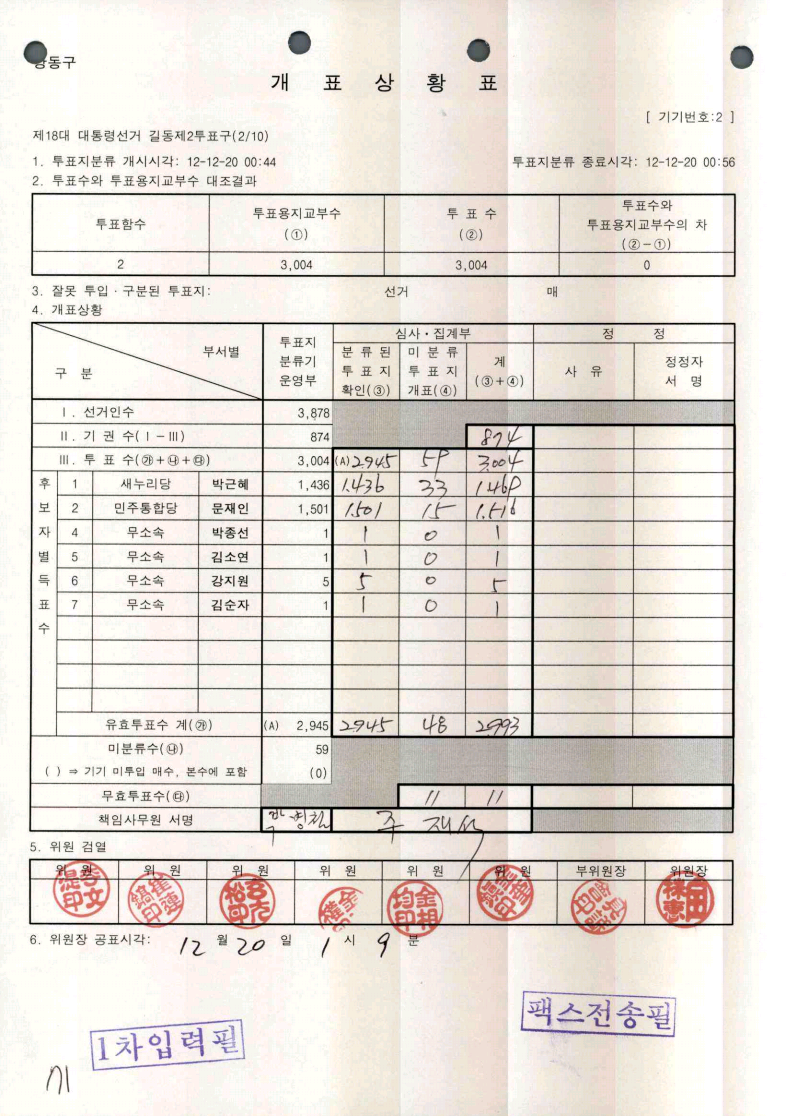 강동구
개 표 상 황 표
[ 기기번호:2 ]
제18대 대통령선거 길동제2투표구(2/10)
1. 투표지분류 개시시각: 12-12-20 00:44 투표지분류 종료시각: 12-12-20 00:56
2. 투표수와 투표용지교부수 대조결과
투표함수 투표용지교부수 (①) 투 표 수 (②) 투표수와 투표용지교부수의 차 (②-①)
2 3,004 3,004 0
3. 잘못 투입 · 구분된 투표지: 선거 매
4. 개표상황
구 분 부서별 투표지 분류기 운영부 심사·집계부 정 정
분 류 된 투 표 지 확인(③) 미 분 류 투 표 지 개표(④) 계 (③+④) 사 유 정정자 서 명
Ⅰ. 선거인수 3,878
Ⅱ. 기 권 수(Ⅰ-Ⅲ) 874 874
Ⅲ. 투 표 수(㉮+㉯+㉰) 3,004 (A) 2.945 59 3.004
후보자별득표수
1 새누리당 박근혜 1,436 1.436 33 1.469
2 민주통합당 문재인 1,501 1.501 15 1.516
4 무소속 박종선 1 1 0 1
5 무소속 김소연 1 1 0 1
6 무소속 강지원 5 5 0 5
7 무소속 김순자 1 1 0 1
유효투표수 계(㉮) (A) 2,945 2.945 48 2.993
미분류수(㉯) 59
( ) ⇒ 기기 미투입 매수, 본수에 포함 (0)
무효투표수(㉰) 11 11
책임사무원 서명
5. 위원 검열
위 원 위 원 위 원 위 원 위 원 위 원 부위원장 위원장
6. 위원장 공표시각: 12 월 20 일 1 시 9 분
팩스전송필
1차입력필
71